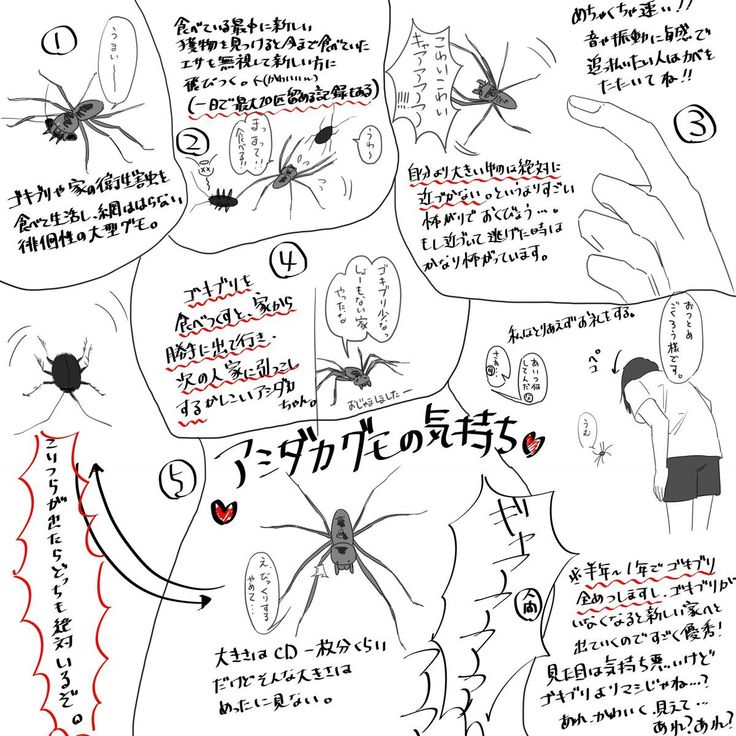 ①
うまい〜〜
ゴキブリや家の衛生害虫を
食べて生活し、網ははらない
徘徊性の大型グモ。
食べている最中に新しい
獲物を見つけると今まで食べていた
エサを無視して新しい方に
飛びつく。
(かわいい)
(一日で最大20匹留める記録もある)
②
まままて!!
食べる!!
うわ〜
こわいこわい
ギャアアアア
!!!
めちゃくちゃ速い!!
音や振動に敏感で
追っ払いたい人はカベを
たたいてね!!
③
自分より大きいものには絶対に
近づかない。というよりすごい
怖がりでおくびょう…。
もし近づいて逃げた時は
かなり怖がっています。
④
ゴキブリを
食べつくすと、家から
勝手に出て行き、
次の人家に引っこし
するかしこいアシダカ
ちゃん。
ゴキブリ少なっ
しょーもない家
やったな
おじゃましましたー
私はとりあえずお礼をする。
おつとめ
ごくろう様です。
ペコ
あいつ何
してんだ
さあ…
うむ
アシダカグモの気持ち
⑤
こいつらが出たらどっちも絶対いるぞ。
え、びっくりする
やめて…
大きさはCD一枚分くらい
だけどそんな大きさは
めったに見ない。
ギャアアアアアア
人間
※半年〜1年でゴキブリ
全めつしますし、ゴキブリが
いなくなると新しい家へと
出ていくのですごく優秀!
見た目は気持ち悪いけど
ゴキブリよりマシじゃね…?
あれ、かわいく見えて…
あれ?あれ?